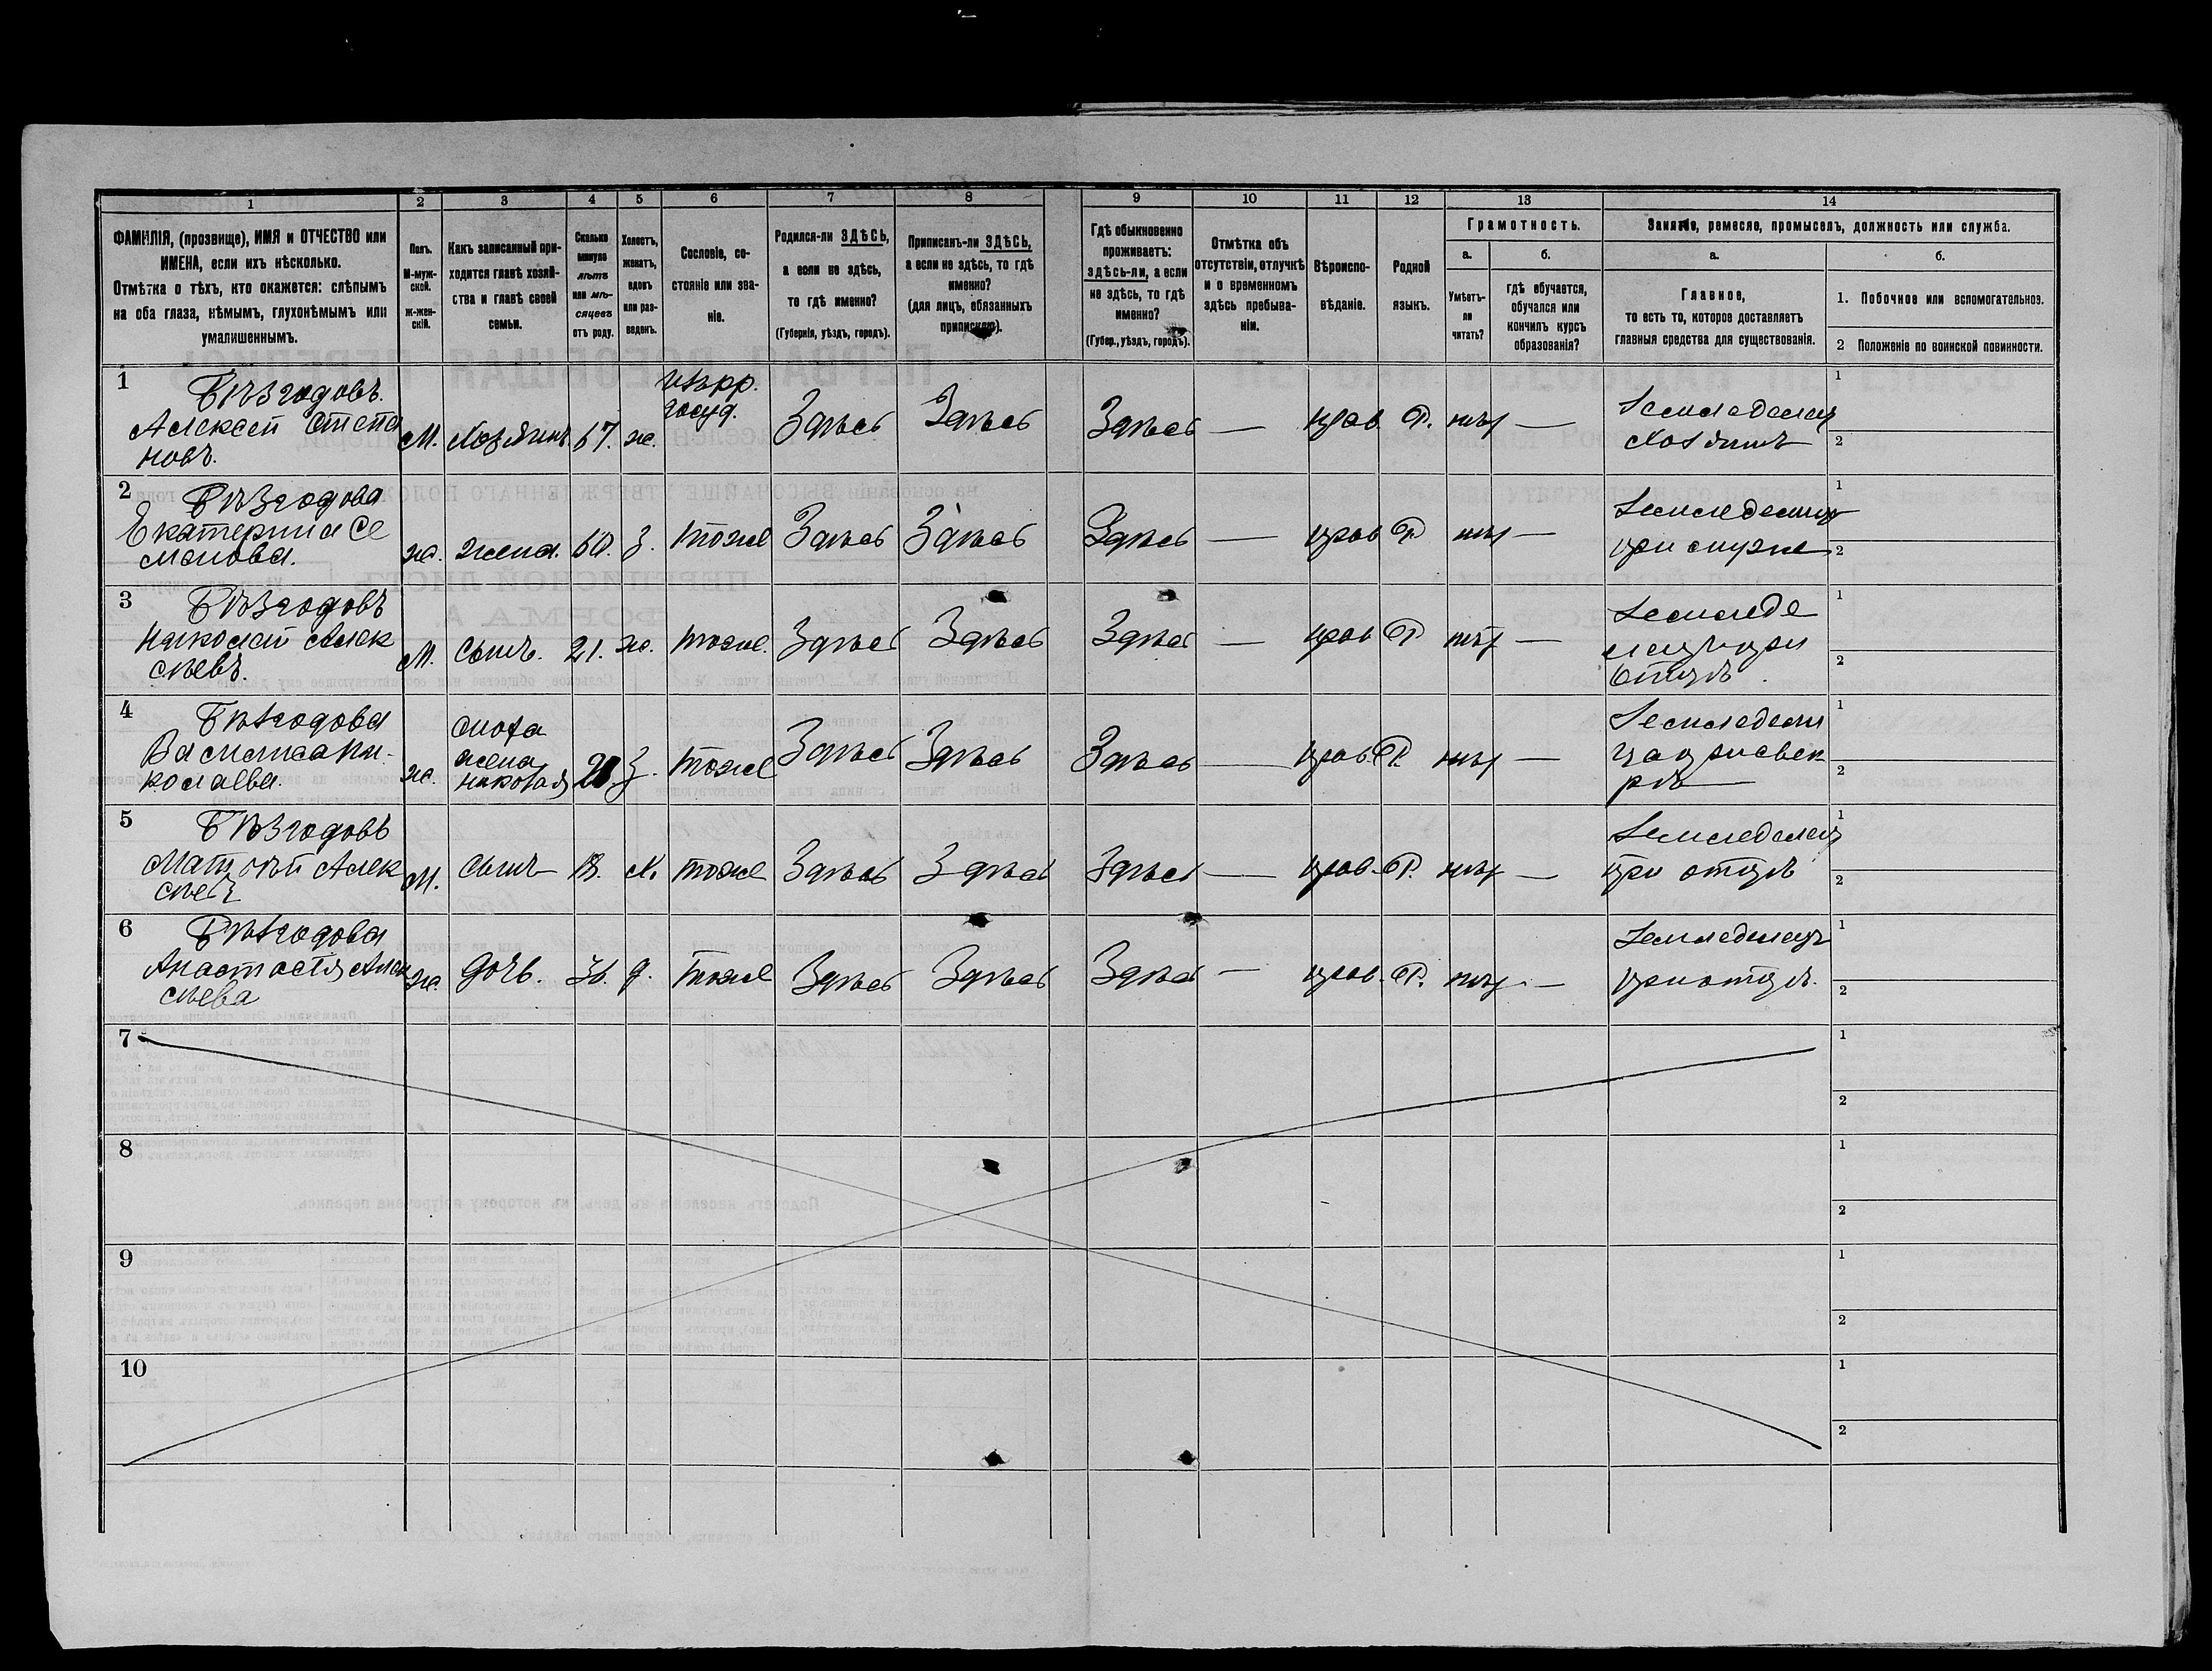 1 2 3 4 5 6 7 8 9 10 11 12 13 14
ФАМИЛІЯ, (прозвище), ИМЯ и ОТЧЕСТВО или
ИМЕНА, если ихъ нѣсколько.
Отмѣтка о тѣхъ, кто окажется: слѣпымъ
на оба глаза, нѣмымъ, глухонѣмымъ или
умалишеннымъ.
Полъ.
М-муж-
ской.
ж-жен-
скій.
Какъ записанный при-
ходится главѣ хозяй-
ства и главѣ своей
семьи.
Сколько
минуло
лѣтъ
или мѣ-
сяцевъ
отъ роду.
Холостъ,
женатъ,
вдовъ
или раз-
веденъ.
Сословіе, со-
стояніе или зва-
ніе.
Родился-ли ЗДѢСЬ,
а если не здѣсь,
то гдѣ именно?
(Губернія, уѣздъ, городъ).
Приписанъ-ли ЗДѢСЬ,
а если не здѣсь, то гдѣ
именно?
(для лицъ, обязанныхъ
припискою).
Гдѣ обыкновенно
проживаетъ:
здѣсь-ли, а если
не здѣсь, то гдѣ
именно?
(Губер., уѣздъ, городъ).
Отмѣтка объ
отсутствіи, отлучкѣ
и о временномъ
здѣсь пребыва-
ніи.
Вѣроиспо-
вѣданіе.
Родной
языкъ.
Грамотность.
а.
Умѣетъ-
ли
читать?
б.
гдѣ обучается,
обучался или
кончилъ курсъ
образованія?
Занятіе, ремесло, промыселъ, должность или служба.
а.
Главное,
то есть то, которое доставляетъ
главныя средства для существованія.
б.
1. Побочное или вспомогательное.
2 Положеніе по воинской повинности.
1 Бѣзгодовъ.
Алексей Степа
новъ.
М. Хозяинъ 67. ж.
госуд.
Здѣсь Здѣсь Здѣсь — прав. Р. нѣт —
Земледелец
Хозяинъ
1
2
2 Бѣзгодова
Екатерина Се
менова.
ж. жена. 60. З. тоже Здѣсь Здѣсь Здѣсь — прав Р нѣт —
при мужѣ
1
2
3 Бѣзгодовъ
Николай Алек
сѣевъ.
М. сынъ. 21. ж. тоже. Здѣсь Здѣсь Здѣсь — прав Р нѣт —
Земледе
лецъ при
отцѣ.
1
2
4 Бѣзгодова
Ни-
колаева.
ж.
сноха
жена
Николая
З. тоже Здѣсь Здѣсь Здѣсь — прав. Р. нѣт —
Земледели
ца при свек
рѣ —
1
2
5 Бѣзгодовъ
Матвѣй Алек
сѣев
М. сынъ 18. Х. тоже Здѣсь Здѣсь Здѣсь — прав. Р. нѣт —
Земледелец
при отцѣ
1
2
6 Бѣзгодова
Анастасія Алек
сѣева
ж. дочь. 36. д. тоже Здѣсь Здѣсь Здѣсь — прав. Р. нѣт —
Земледелецъ
при отцѣ.
1
2
7
1
2
8
1
2
9
1
2
10
1
2